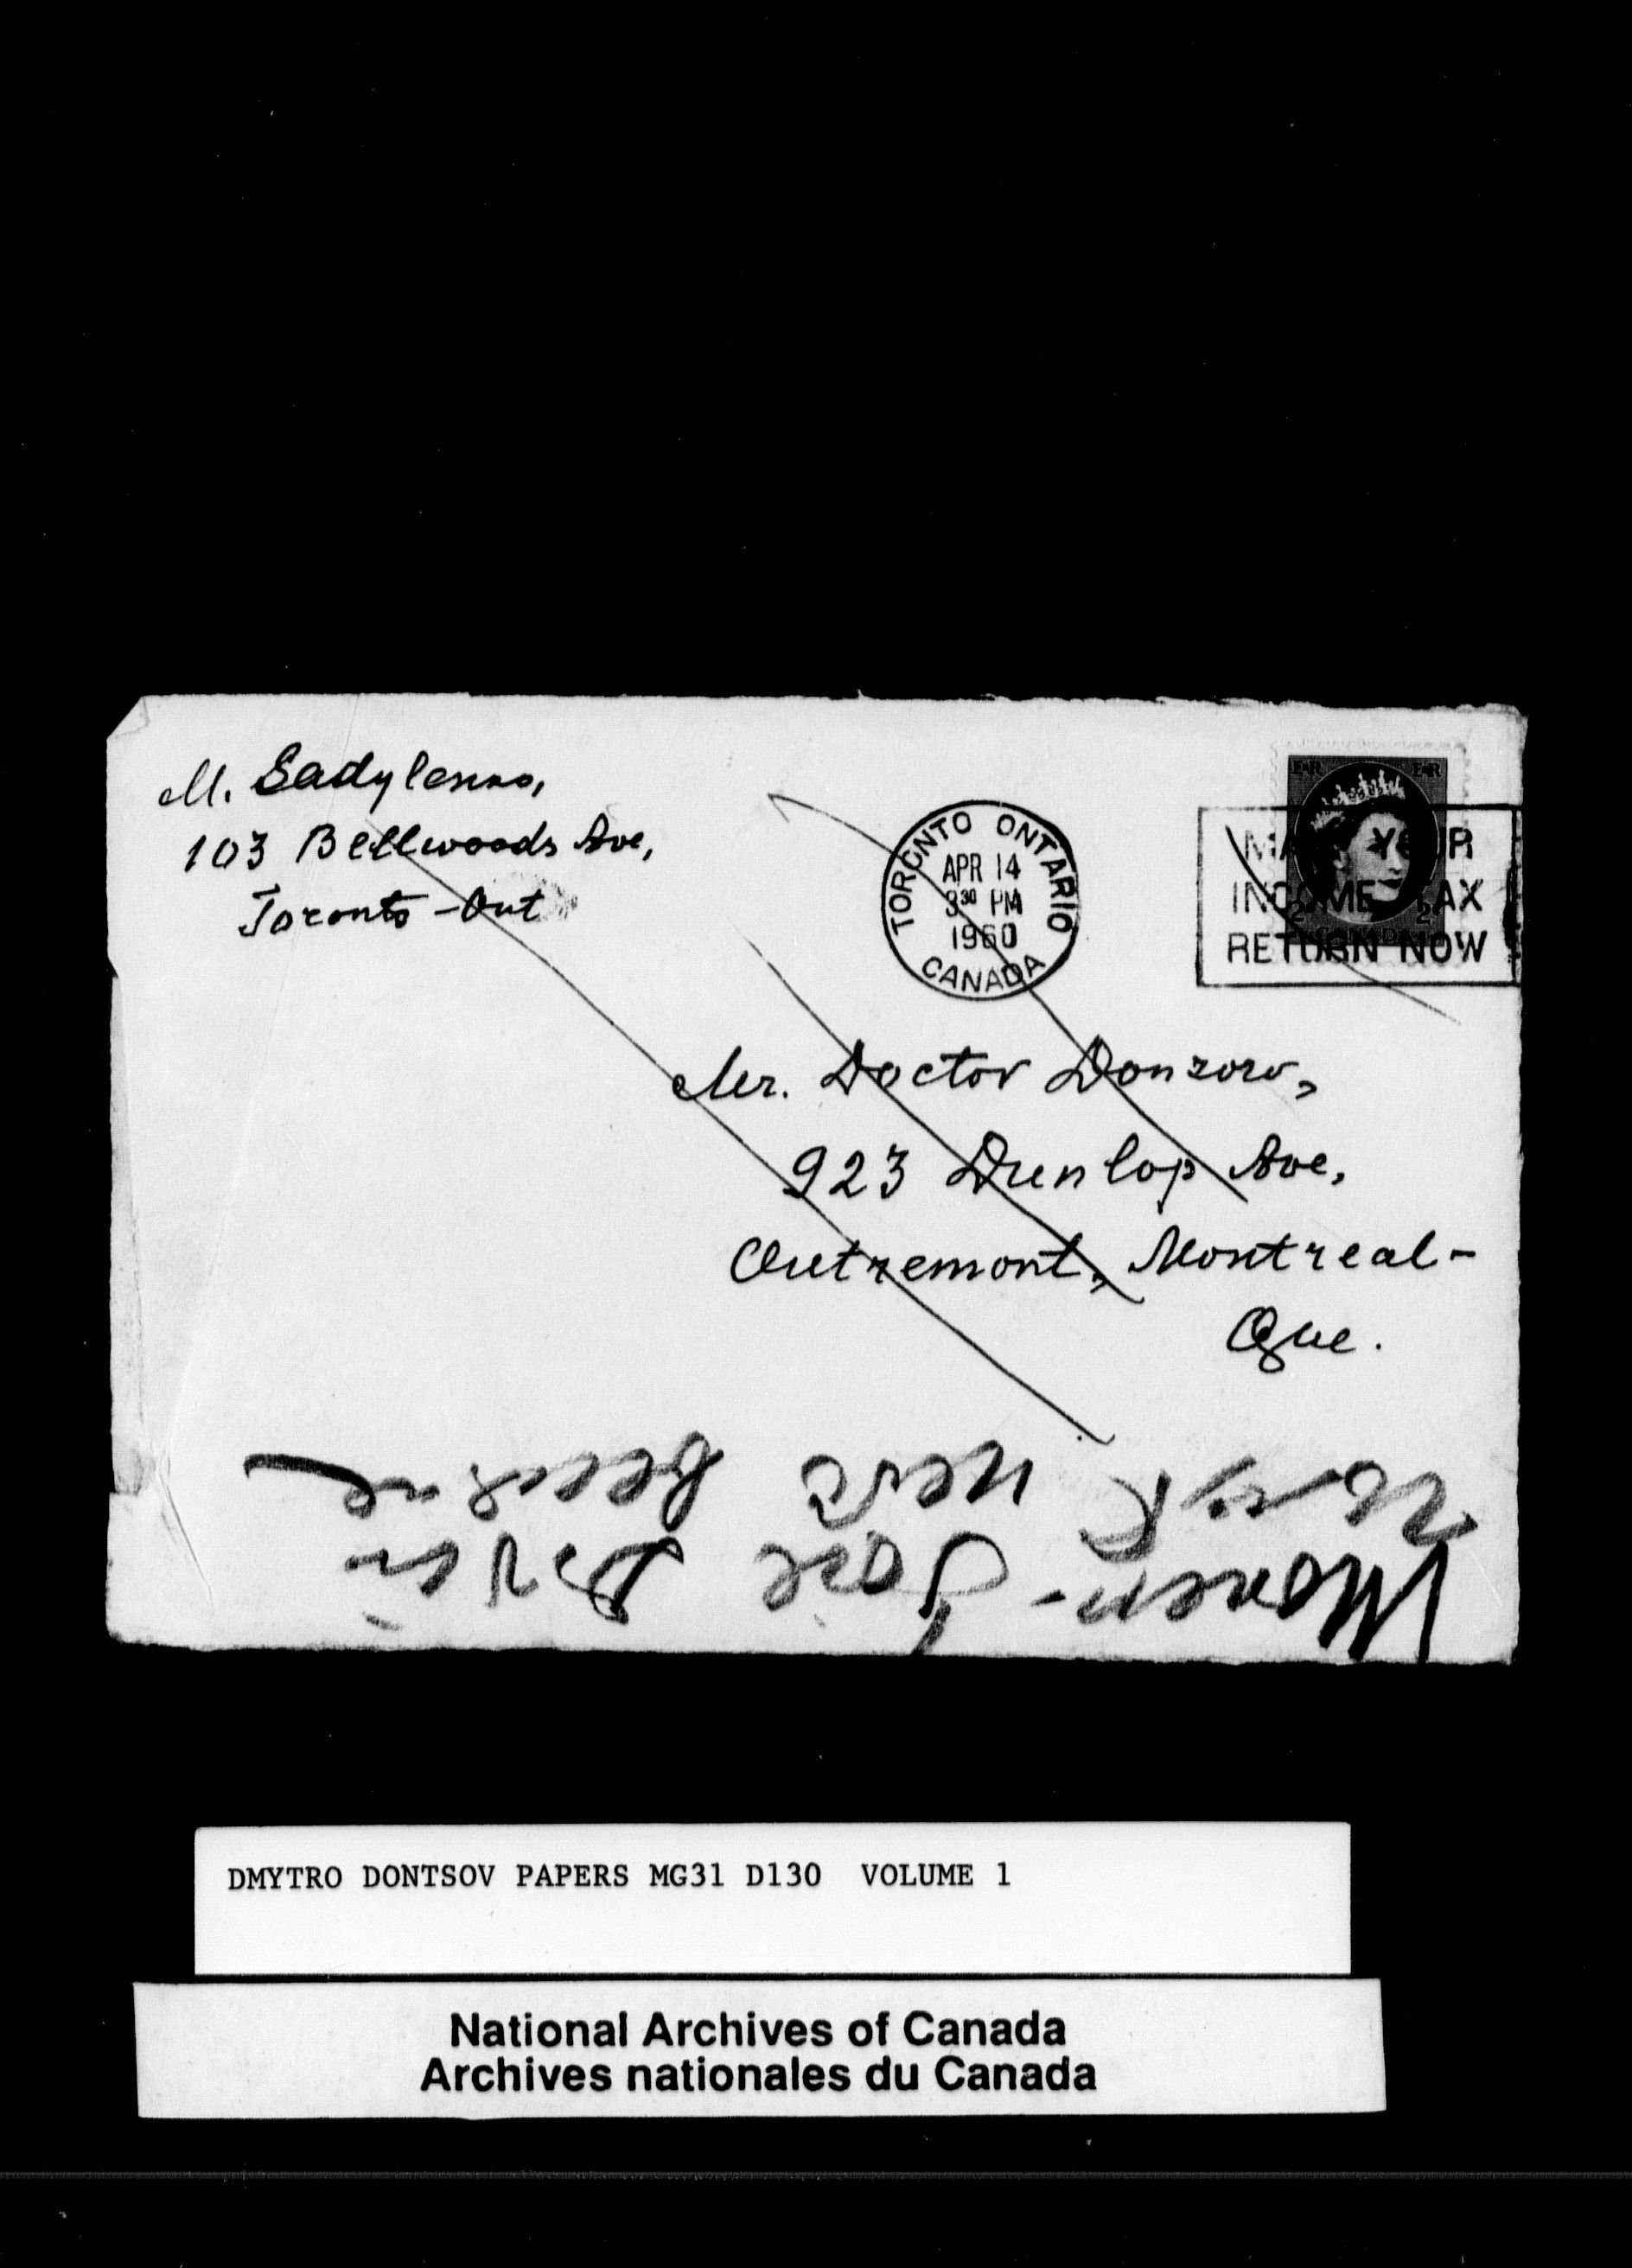 M. Sadylenko,
103 Bellwoods Ave,
Toronto - Ont
TORONTO ONTARIO
APR 14
3 30 PM
1960
CANADA
E R E R
MAIL YOUR
INCOME TAX
RETURN NOW
2 2
Mr. Doctor Donzow,
923 Dunlop Ave,
Outremont, Montreal -
Que.
DMYTRO DONTSOV PAPERS MG31 D130 VOLUME 1
National Archives of Canada
Archives nationales du Canada